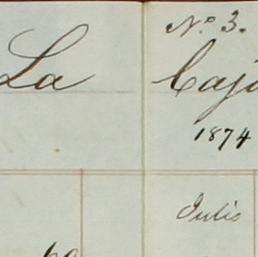 No. 3.
La Caja
1874
Julio